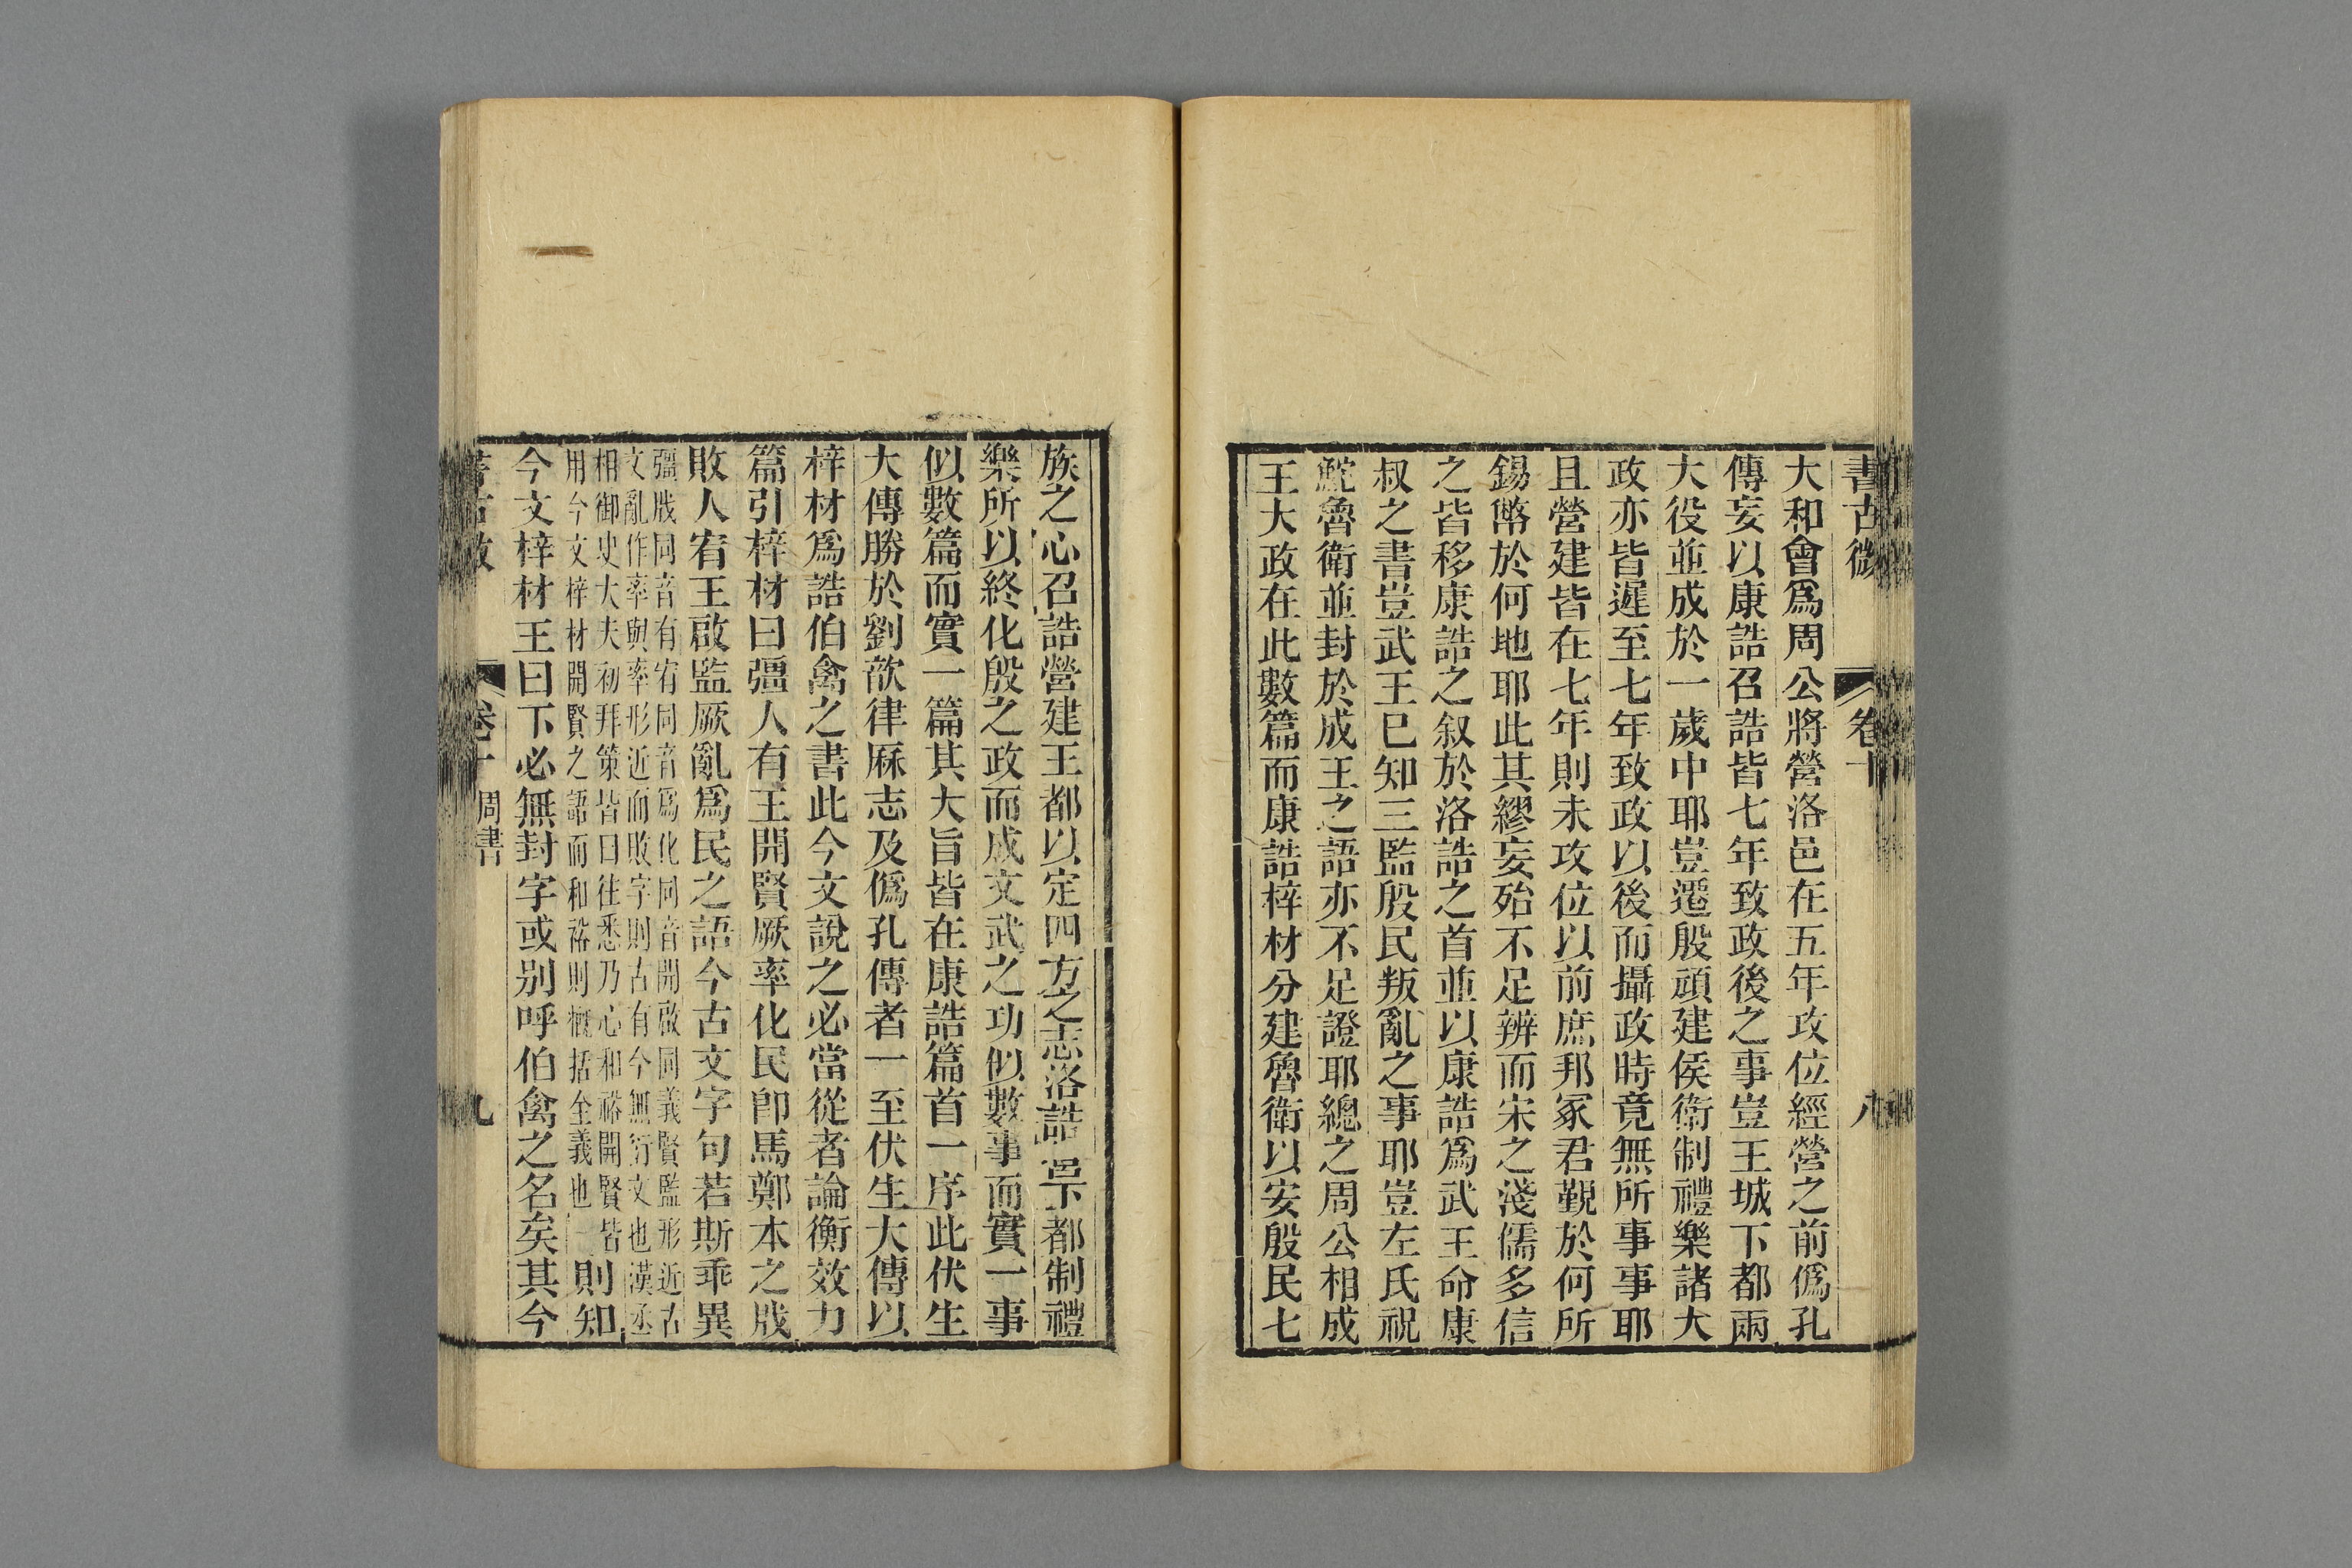 書古微 卷十 八
大和會爲周公將營洛邑在五年攻位經營之前僞孔
傳妄以康誥召誥皆七年致政後之事豈王城下都兩
大役並成於一歲中耶豈遷殷頑建侯衛制禮樂諸大
政亦皆遲至七年致政以後而攝政時竟無所事事耶
且營建皆在七年則未攻位以前庶邦冢君覲於何所
錫幣於何地耶此其繆妄殆不足辨而宋之淺儒多信
之皆移康誥之叙於洛誥之首並以康誥爲武王命康
叔之書豈武王已知三監殷民叛亂之事耶豈左氏祝
鮀魯衛並封於成王之語亦不足證耶總之周公相成
王大政在此數篇而康誥梓材分建魯衛以安殷民七
族之心召誥營建王都以定四方之志洛誥宅下都制禮
樂所以終化殷之政而成文武之功似數事而實一事
似數篇而實一篇其大旨皆在康誥篇首一序此伏生
大傳勝於劉歆律厤志及僞孔傳者一至伏生大傳以
梓材爲誥伯禽之書此今文說之必當從者論衡效力
篇引梓材曰彊人有王開賢厥率化民卽馬鄭本之戕
敗人宥王啟監厥亂爲民之語今古文字句若斯乖異
彊戕同音有宥同音爲化同音開啟同義賢監形近古
文亂作率與率形近而敗字則古有今無衍文也漢丞
相御史大夫初拜策皆曰往悉乃心和裕開賢皆
用今文梓材開賢之語而和裕則櫽括全義也
則知
今文梓材王曰下必無封字或别呼伯禽之名矣其今
書古微 卷十 周書 九